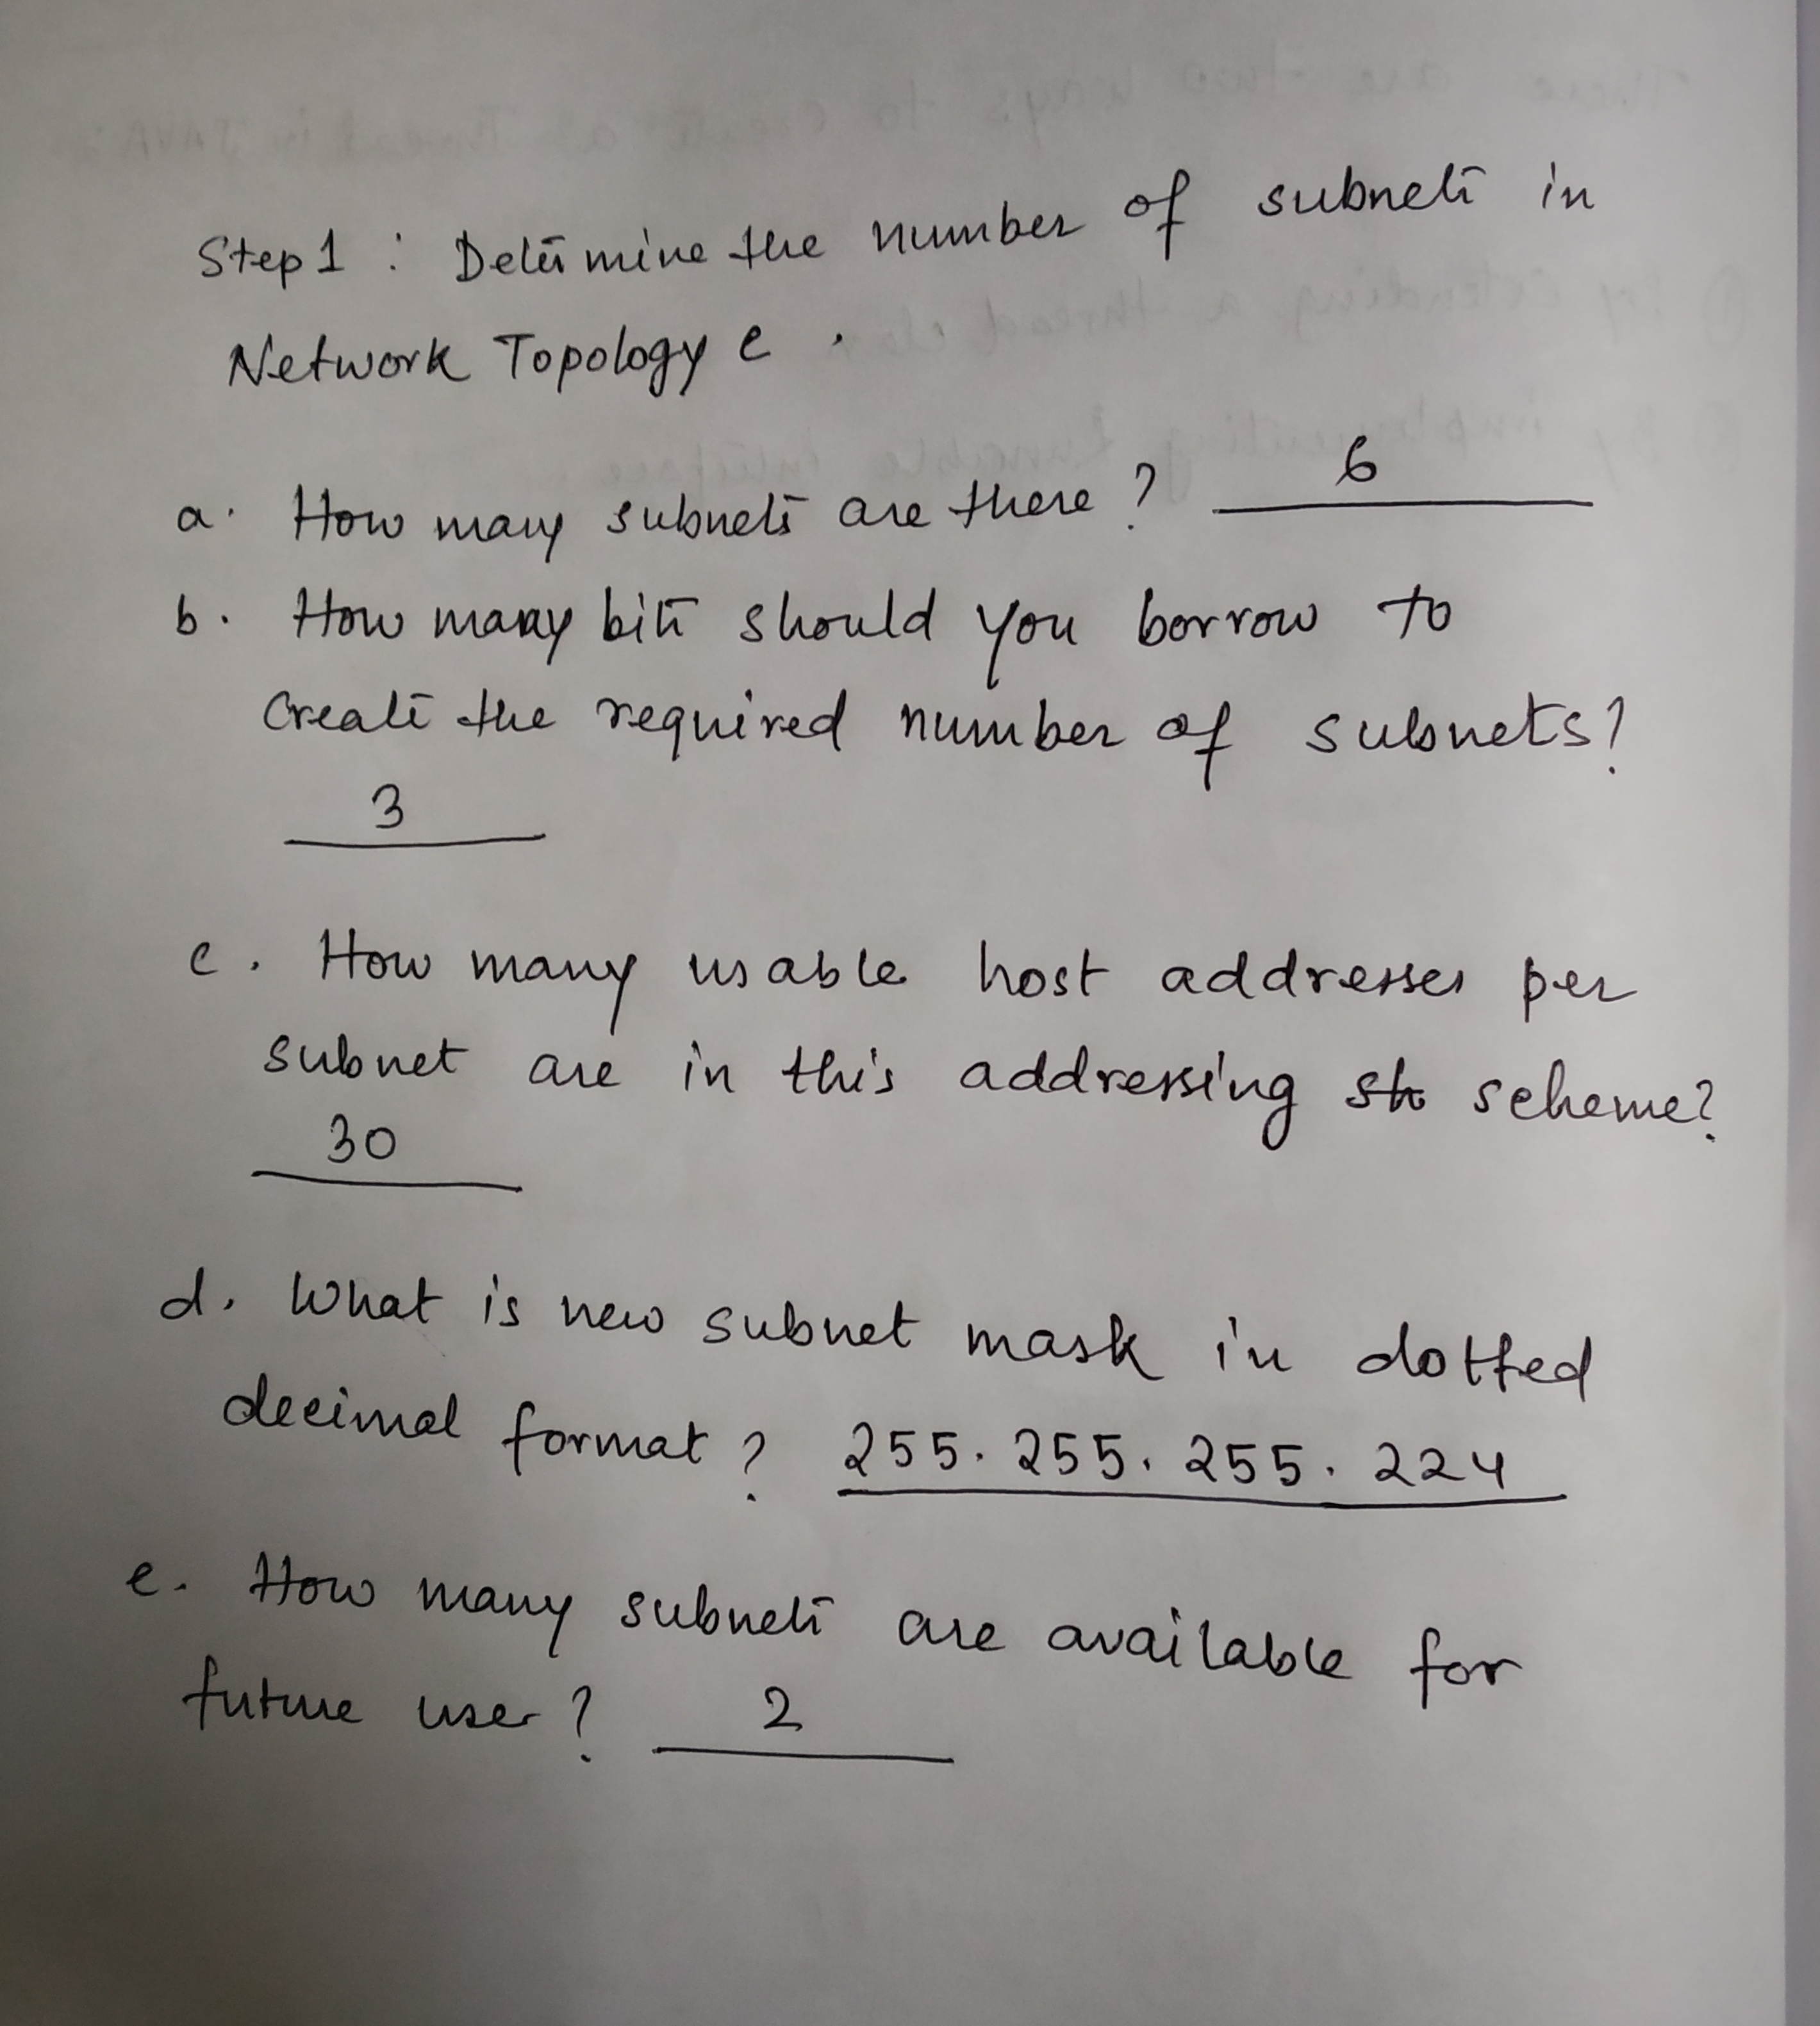 Step 1 : Determine the number of subnets in
Network Topology C .
a. How many subnets are there ? 6
b. How many bits should you borrow to
create the required number of subnets?
3
c. How many usable host addresses per
subnet are in this addressing scheme?
30
d. What is new subnet mask in dotted
decimal format ? 255. 255. 255. 224
e. How many subnets are available for
future user ? 2